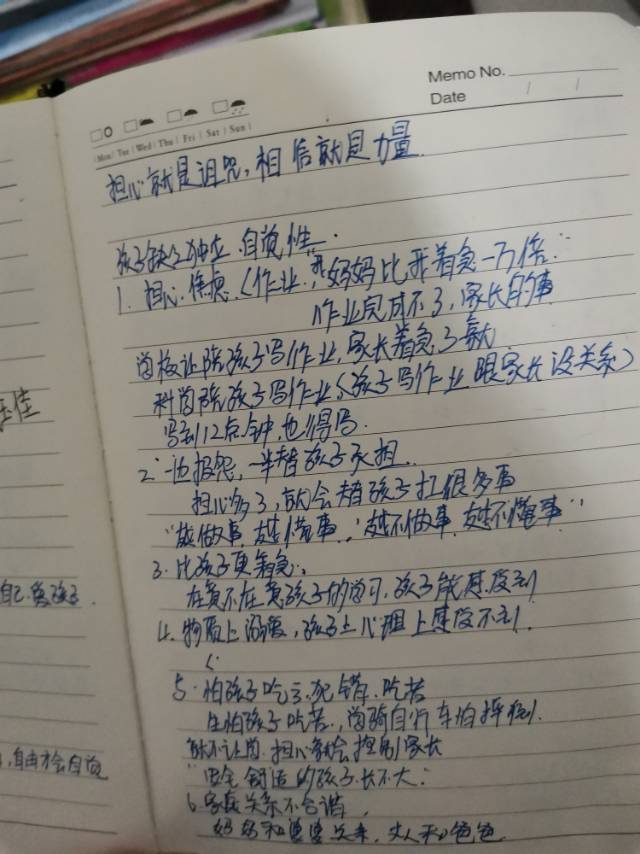 Memo No.
Date / /
Mon/ Tue/ Wed/ Thu/ Fri/ Sat/ Sun/
担心就是诅咒,相信就是力量
孩子缺乏独立.自觉性.
1. 担心.焦虑.(作业.,妈妈比我着急一万倍.
作业完成不了,家长的事
学校让陪孩子写作业,家长着急了就
科学陪孩子写作业(孩子写作业跟家长没关系)
写到12点钟,也得写.
2. 一边抱怨,一半替孩子承担.
担心多了,就会替孩子扛很多事
"越做事,越懂事.,越不做事,越不懂事"
3. 比孩子更着急.
在意不在意孩子的学习,孩子能感受到
4. 物质上溺爱,孩子上心理上感受不到.
5. 怕孩子吃亏.犯错.吃苦
生怕孩子吃苦.学骑自行车怕摔倒.
就不让学.担心就会控制家长
"安全创造的孩子长不大.
6. 家庭关系不合谐,
妈妈和婆婆关系.大人和爸爸
玉佳
自己.爱孩子.
,自由才会自觉